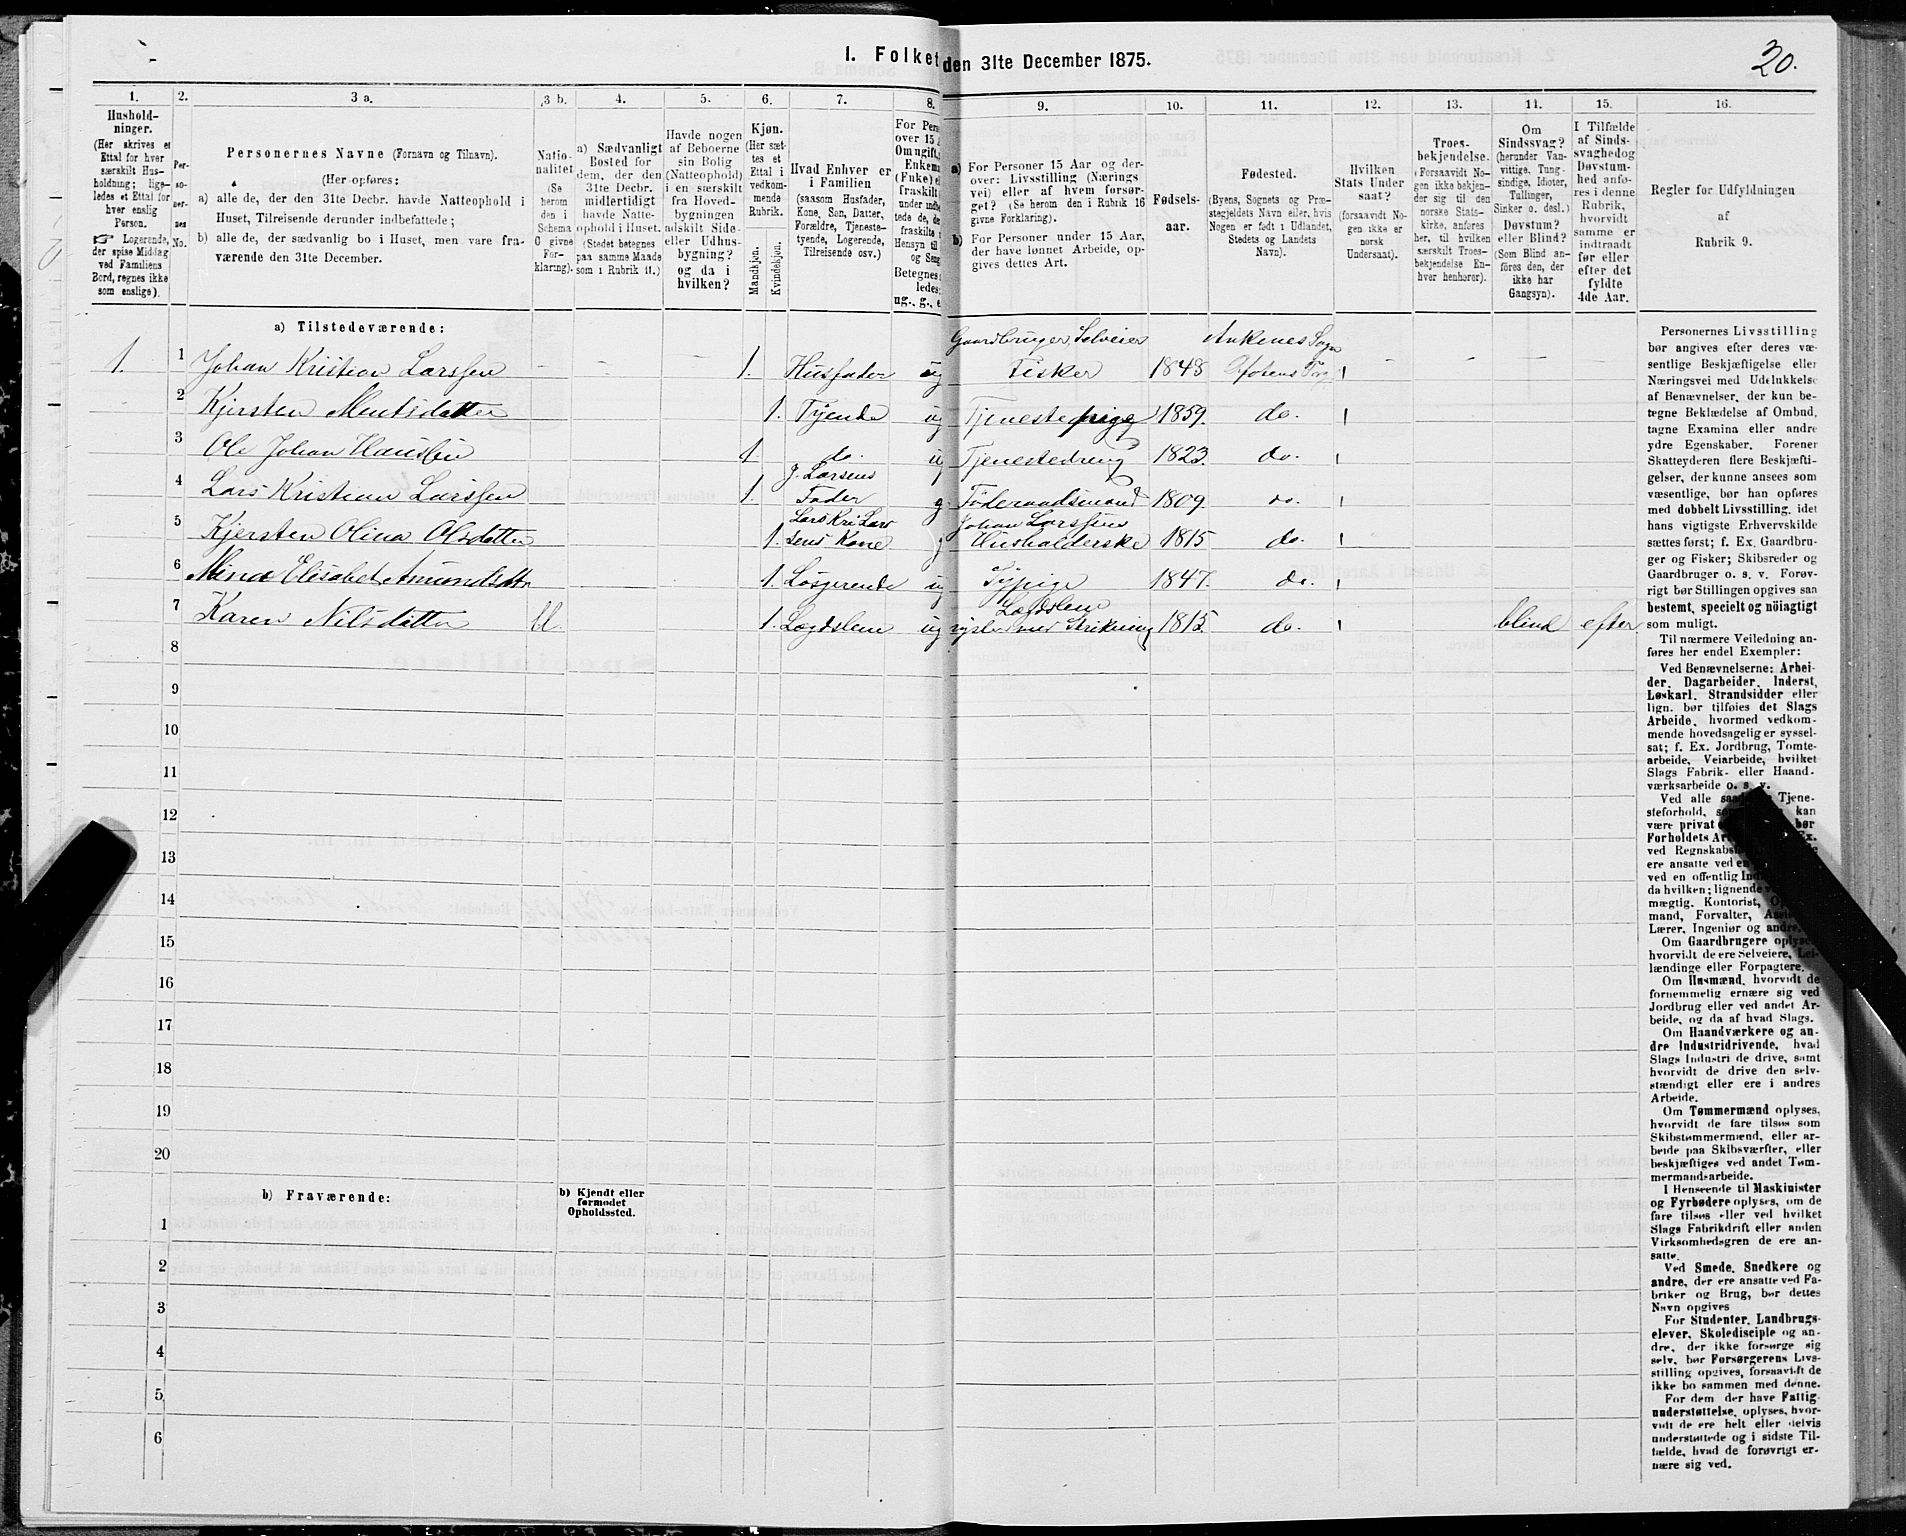 I. Folket den 31te December 1875.
20.
1.
2.
3 a.
3 b.
4.
5.
6.
7.
8.
9.
10.
11.
12.
13.
14.
15.
16.
Hushold-
ninger.
(Her skrives et
Ettal for hver
særskilt Hus-
holdning; lige-
ledes et Ettal for
hver enslig
Person.
☞ Logerende,
der spise Middag
ved Familiens
Bord, regnes ikke
som enslige).
Per-
so-
ner-
nes
No.
Personernes Navne (Fornavn og Tilnavn).
(Her opføres:
a) alle de, der den 31te Decbr. havde Natteophold i
Huset, Tilreisende derunder indbefattede;
b) alle de, der sædvanlig bo i Huset, men vare fra-
værende den 31te December.
Natio-
nalitet.
(Se
herom
den i
Schema
C givne
For-
klaring).
a) Sædvanligt
Bosted for
dem, der den
31te Decbr.
midlertidigt
havde Natte-
ophold i Huset.
(Stedet betegnes
paa samme Maade
som i Rubrik 11.)
Havde nogen
af Beboerne
sin Bolig
(Natteophold)
i en særskilt
fra Hoved-
bygningen
adskilt Side-
eller Udhus-
bygning?
og da i
hvilken?
Kjøn.
(Her sæt-
tes et
Ettal i
vedkom-
mende
Rubrik.
Mandkjøn.
Kvindekjøn.
Hvad Enhver er
i Familien
(saasom Husfader,
Kone, Søn, Datter,
Forældre, Tjeneste-
tyende, Logerende,
Tilreisende osv.)
For Pers
over 15
Om ugift,
Enkem
(Fuke) e
fraskilt
under indb
tede de, d
fraskilte
Hensyn til
og Sen
Betegnes
ledes:
ug., g., e
a) For Personer 15 Aar og der-
over: Livsstilling (Nærings
vei) eller af hvem forsør-
get? (Se herom den i Rubrik 16
givne Forklaring).
b) For Personer under 15 Aar,
der have lønnet Arbeide, op-
gives dettes Art.
Fødsels-
aar.
Fødested.
(Byens, Sognets og Præ-
stegjeldets Navn eller, hvis
Nogen er født i Udlandet,
Stedets og Landets
Navn).
Hvilken
Stats Under
saat?
(forsaavidt No-
gen ikke er
norsk
Undersaat).
Troes-
bekjendelse.
(Forsaavidt No-
gen ikke bekjen-
der sig til den
norske Stats-
kirke, anføres
her, til hvilken
særskilt Troes-
bekjendelse En-
hver henhører).
Om
Sindssvag?
(herunder Van-
vittige, Tung-
sindige, Idioter,
Tullinger,
Sinker o. desl.)
Døvstum?
eller Blind?
(Som Blind an-
føres den, der
ikke har
Gangsyn).
I Tilfælde
af Sinds-
svaghed og
Døvstum-
hed anfø-
res i denne
Rubrik,
hvorvidt
samme er
indtraadt
før eller
efter det
fyldte
4de Aar.
Regler for Udfyldningen
af
Rubrik 9.
a) Tilstedeværende:
1. 1 Johan Kristian Larssen - - 1. Husfader ug Gaardbruger, Selveier Fisker 1848 Ankenes Sogn Ofotens
2 Kjersten Mentsdatter 1. Tjende ug Tjenestepige 1859. do.
3 Ole Johan Hanssen 1. do. ug Tjenestedreng 1823. do.
4 Lars Kristian Larssen 1. J. Larsens Fader g. Föderaadsmand 1809. do.
5 Kjersten Olina Olsdatter 1. Lars Kri Lars sens Kone g Johan Larssens Husholderske 1815 do.
6 Mina Elisabet Amundsdtr 1. Losjerende ug Sypige 1847. do.
7 Karen Nilsdatter 1. Lægdslem ug Lægdslem med Strikning 1815. do. blind efter
8
9
10
11
12
13
14
15
16
17
18
19
20
b) Fraværende:
b) Kjendt eller
formodet
Opholdssted.
1
2
3
4
5
6
Personernes Livsstilling
bør angives efter deres væ-
sentlige Beskjæftigelse eller
Næringsvei med Udelukkelse
af Benævnelser, der kun be-
tegne Beklædelse af Ombud,
tagne Examina eller andre
ydre Egenskaber. Forener
Skatteyderen flere Beskjæfti-
gelser, der kunne ansees som
væsentlige, bør han opføres
med dobbelt Livsstilling, idet
hans vigtigste Erhvervskilde
sættes først; f. Ex. Gaardbru-
ger og Fisker; Skibsreder og
Gaardbruger o. s. v. Forøv-
rigt bør Stillingen opgives saa
bestemt, specielt og nöiagtigt
som muligt.
Til nærmere Veiledning an-
føres her endel Exempler:
Ved Benævnelserne: Arbei-
der, Dagarbeider, Inderst,
Løskarl, Strandsidder eller
lign. bør tilføies det Slags
Arbeide, hvormed vedkom-
mende hovedsagelig er syssel-
sat; f. Ex. Jordbrug, Tomte-
arbeide, Veiarbeide, hvilket
Slags Fabrik- eller Haand-
værksarbeide o. s. v.
Ved alle Tjene-
steforhold, kan
være privat bør
Forholdets Ex.
ved
ere ansatte ved en
ved en offentlig
da hvilken; lignende
mægtig. Kontorist,
mand, Forvalter,
Lærer, Ingeniør og andre.
Om Gaardbrugere oplyses,
hvorvidt de ere Selveiere, Lei-
lændinge eller Forpagtere.
Om Husmænd, hvorvidt de
fornemmelig ernære sig ved
Jordbrug eller ved andet Ar-
beide, og da af hvad Slags.
Om Haandværkere og an-
dre Industridrivende, hvad
Slags Industri de drive, samt
hvorvidt de drive den selv-
stændigt eller ere i andres
Arbeide.
Om Tømmermænd oplyses,
hvorvidt de fare tilsøs som
Skibstømmermænd, eller ar-
beide paa Skibsværfter, eller
beskjæftiges ved andet Tøm-
mermandsarbeide.
I Henseende til Maskinister
og Fyrbødere oplyses, om de
fare tilsøs eller ved hvilket
Slags Fabrikdrift eller anden
Virksomhedsgren de ere an-
satte.
Ved Smede, Snedkere og
andre, der ere ansatte ved Fa-
briker og Brug, bør dettes
Navn opgives
For Studenter, Landbrugs-
elever, Skoledisciple og an-
dre, der ikke forsørge sig
selv, bør Forsørgerens Livs-
stilling opgives, forsaavidt de
ikke bo sammen med denne.
For dem, der have Fattig-
understøttelse, oplyses, hvor-
vidt de ere helt eller delvis
understøttede og i sidste Til-
fælde, hvad de forøvrigt er-
nære sig ved.